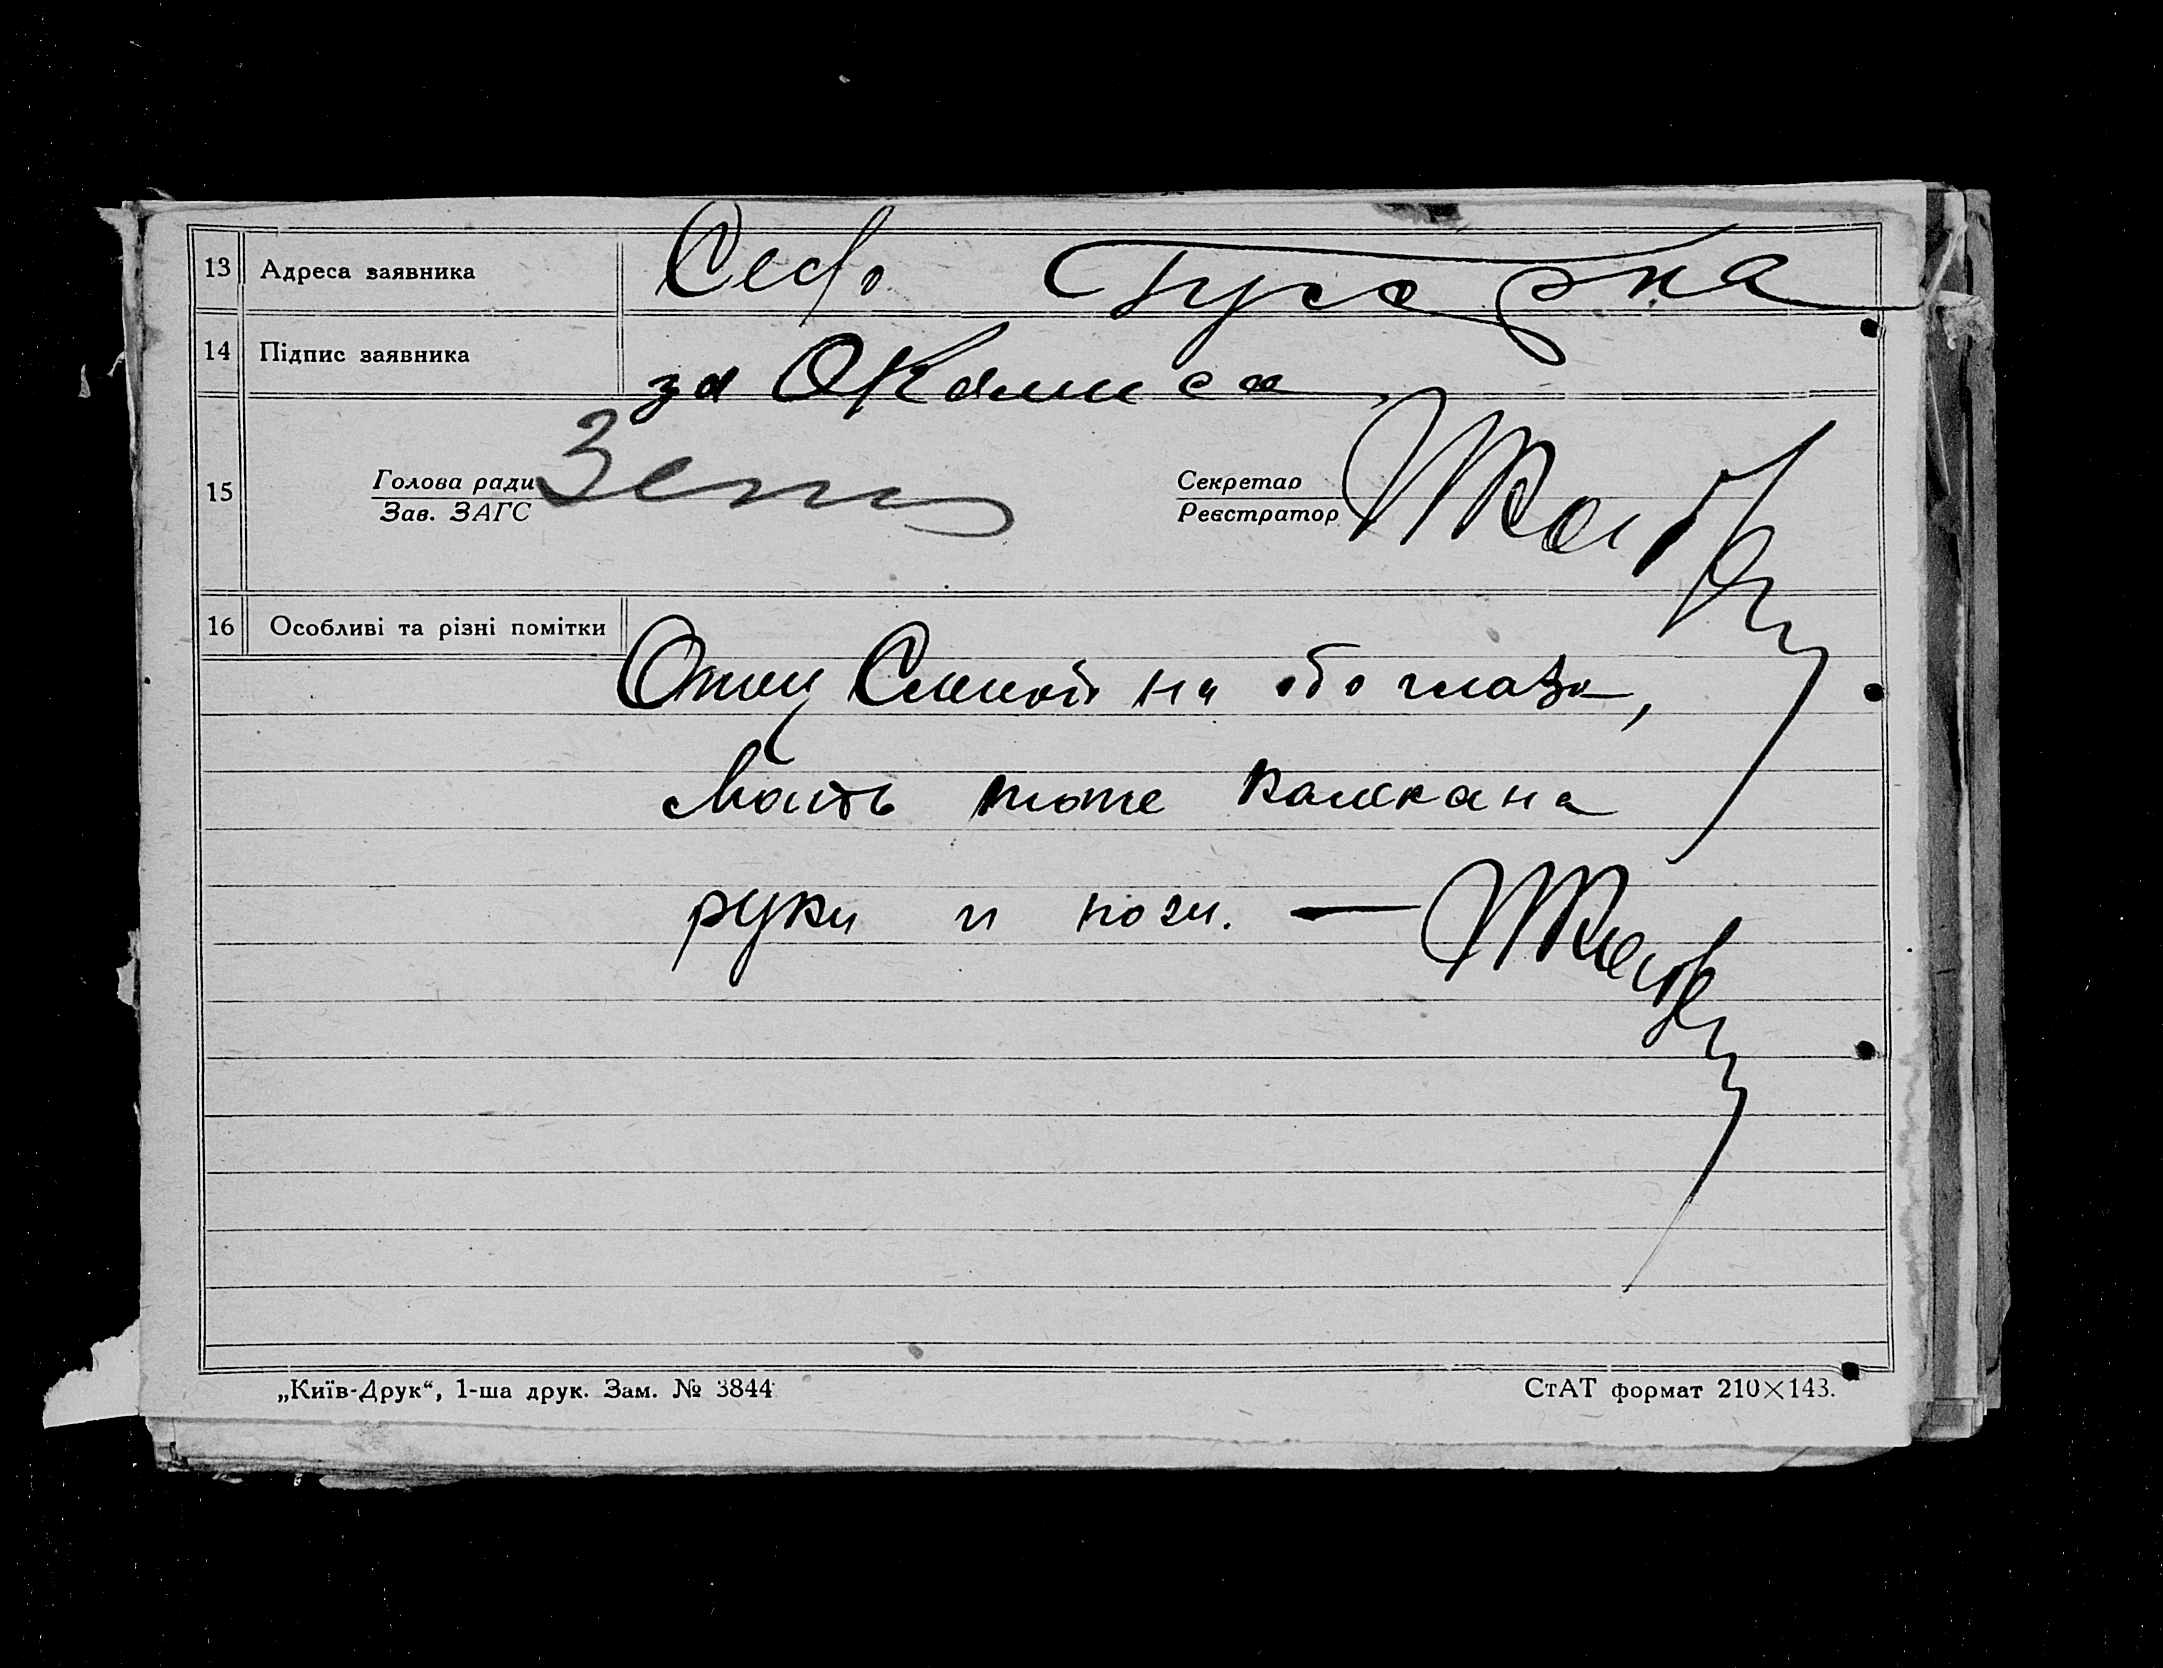 13 Адреса заявника
14 Підпис заявника за
15 Голова ради Секретар
Зав. ЗАГС Реєстратор
16 Особливі та різні помітки
Отец Слепой на обо глаза,
Мать тоже калекана
руки и ноги. —
„Київ-Друк“, 1-ша друк. Зам. № 3844
СтАТ формат 210×143.